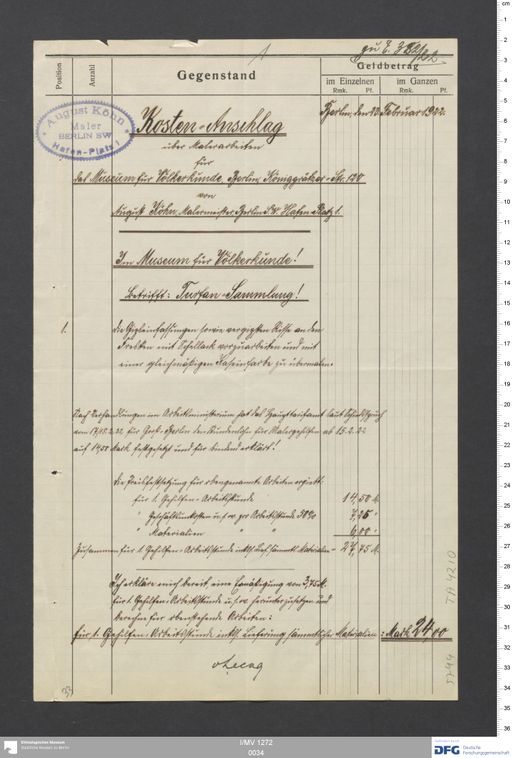 zu E. 382/22
1
Position
Anzahl
Gegenstand
Geldbetrag
im Einzelnen
im Ganzen
Rmk. Pf.
Rmk. Pf.
August Köhn
Maler
BERLIN SW
Hafen-Platz 1
Berlin, den 23. Februar 1922.
Kosten-Anschlag
über Malerarbeiten
für
das Museum für Völkerkunde, Berlin, Königgrätzer-Str. 120
von
August Köhn, Malermeister, Berlin S.W. Hafen Platz 1.
Im Museum für Völkerkunde!
Betrifft: Turfan-Sammlung!
1.
die Gipseinfassungen sowie vergipsten Risse an den
Fresken mit Schellack vorzuarbeiten und mit
einer gleichmäßigen Kaseinfarbe zu übermalen.
Nach Verhandlungen im Arbeitsministerium hat das Haupttarifamt laut Schiedsspruch
vom 17.2.22 für Groß-Berlin den Stundenlohn für Malergehilfen ab 15.2.22
auf 14,50 Mark festgesetzt und für bindend erklärt!
die Preisfestsetzung für obengenannte Arbeiten ergibt:
für 1. Gehilfen-Arbeitsstunde 14,50 M.
" Geschäftsunkosten u.s.w. pro Arbeitsstunde 50% 7,25 "
" Materialien " " 6,00 "
Zusammen für 1 Gehilfen-Arbeitsstunde inkl. Lief. sämmtl. Materialien = 27,75 M.
Ich erkläre mich bereit, eine Ermäßigung von 3,75 M.
für 1. Gehilfen-Arbeitsstunde u.s.w. herunterzusetzen und
berechne für obenstehende Arbeiten:
für 1. Gehilfen-Arbeitsstunde inkl. Lieferung sämmtlicher Materialien: Mark 24,00
TA 4210
5744
33
Ethnologisches Museum
Staatliche Museen zu Berlin
I/MV 1272
0034
DFG Deutsche
Forschungsgemeinschaft
cm
1
2
3
4
5
6
7
8
9
10
11
12
13
14
15
16
17
18
19
20
21
22
23
24
25
26
27
28
29
30
31
32
33
34
35
36